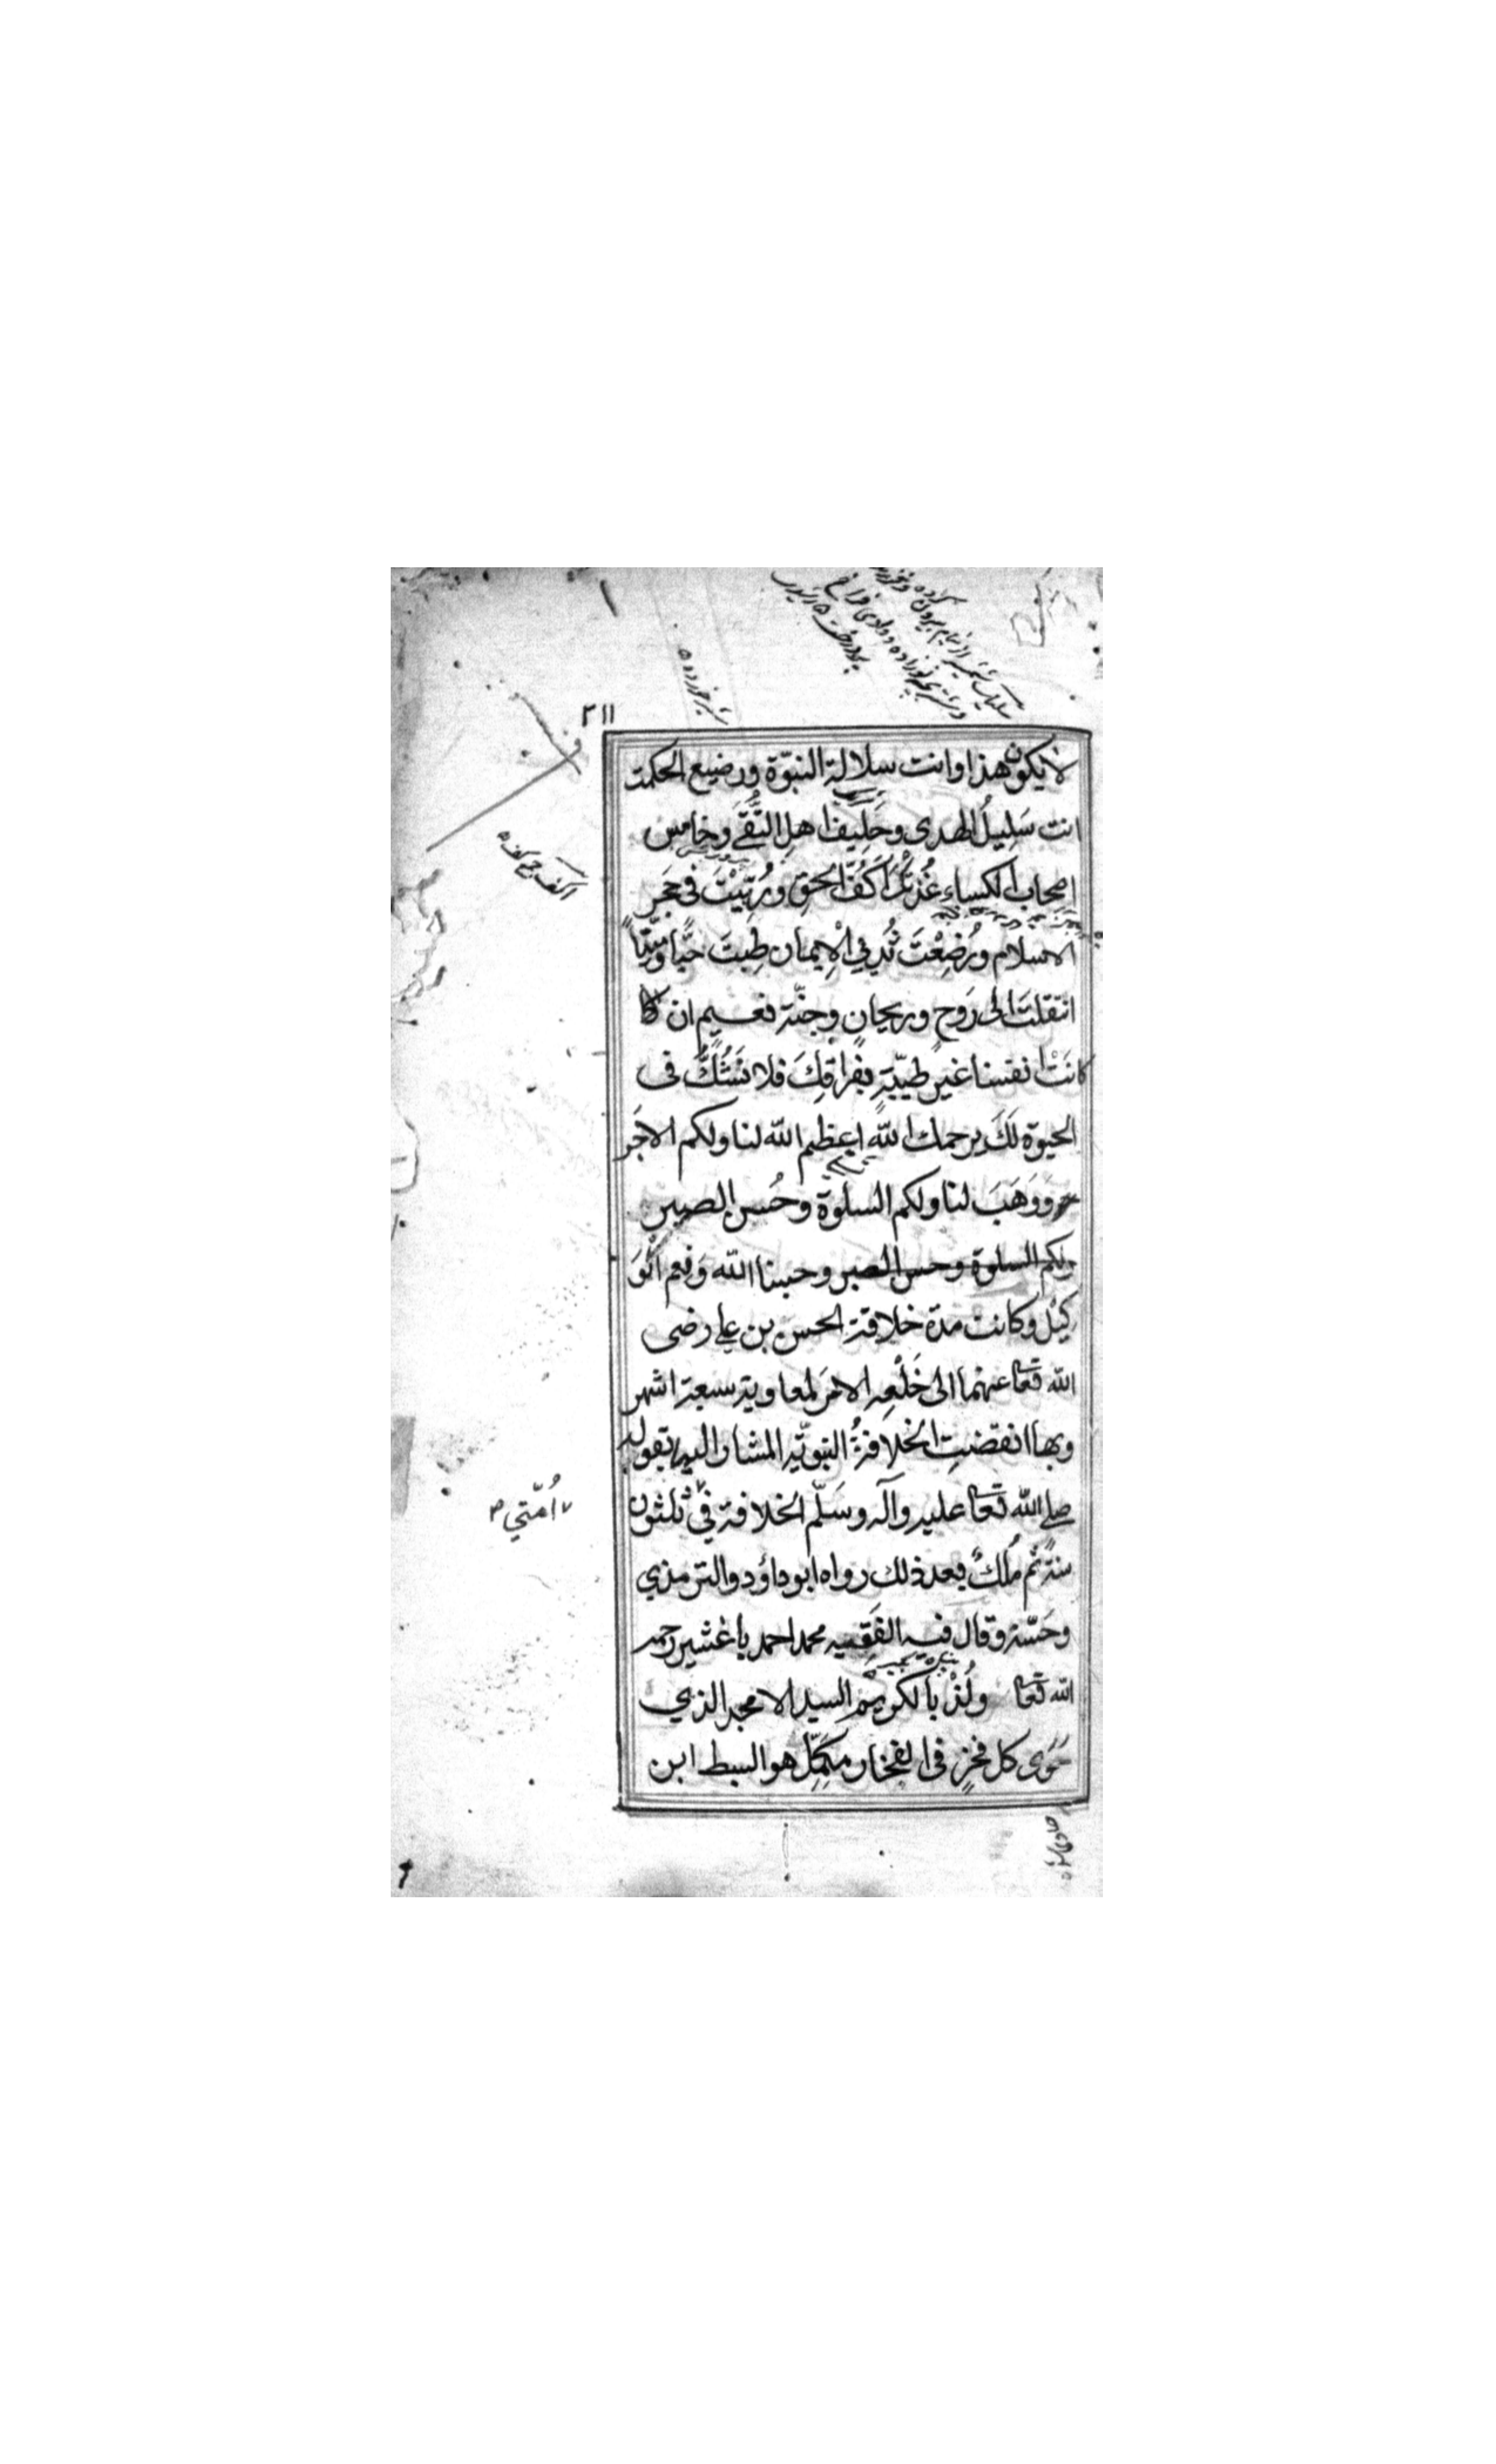 ٢١١
شیر خورده ۵
لا يكون هذا وانت سلالة النبوّة ورضيع الحكمة
انت سَلِيلُ الهدى وحَلِيف اهلِ التُّقَے وخامس
اصحاب الكساء غُذتْكَ اَكُفُّ الحق ورُبِّيْتَ فى حَجَرِ
الاسلام ورُضِعْتَ ثُديِ الْاِيمان طِبتَ حيًّا وميّتًا
انتقلتَ الى رَوح وريحانٍ وجنّة نعيم ان كا
كانَتْ انفسنا غيرَ طيّبةٍ بفراقِكَ فلا نَشُكُّ فى
الحيوة لَكَ يرحمك اللهُ اعظم الله لنا ولكم الاجَر
وَوَهَبَ لنا ولكم السلوة وحُسن الصبر
ولكم السلوة وحسن الصبر وحسبنا الله ونعم الوَ
كِيْل وكانت مدة خلافة الحسن بن علے رضى
الله تعا عنهما الى خَلْعِه الامرَ لمعاوية سبعة اشهر
وبها انقضتِ الخلافةُ النبويّة المشار اليها بقوله
صلے الله تعا عليه وآله وسَلّم الخلافة في ثلثون
سنةً ثم مُلكٌ بعد ذلك رواه ابو داؤد والترمذي
وحَسّنه وقال فيه الفَقِيه محمد احمد با غشير رحمه
الله تعا ولُذْ بالكريم السيد الامجد الذي
حَوَى كل فخرٍ فى الفخار مكمّلٍ هو السبط ابن
اُمّتي